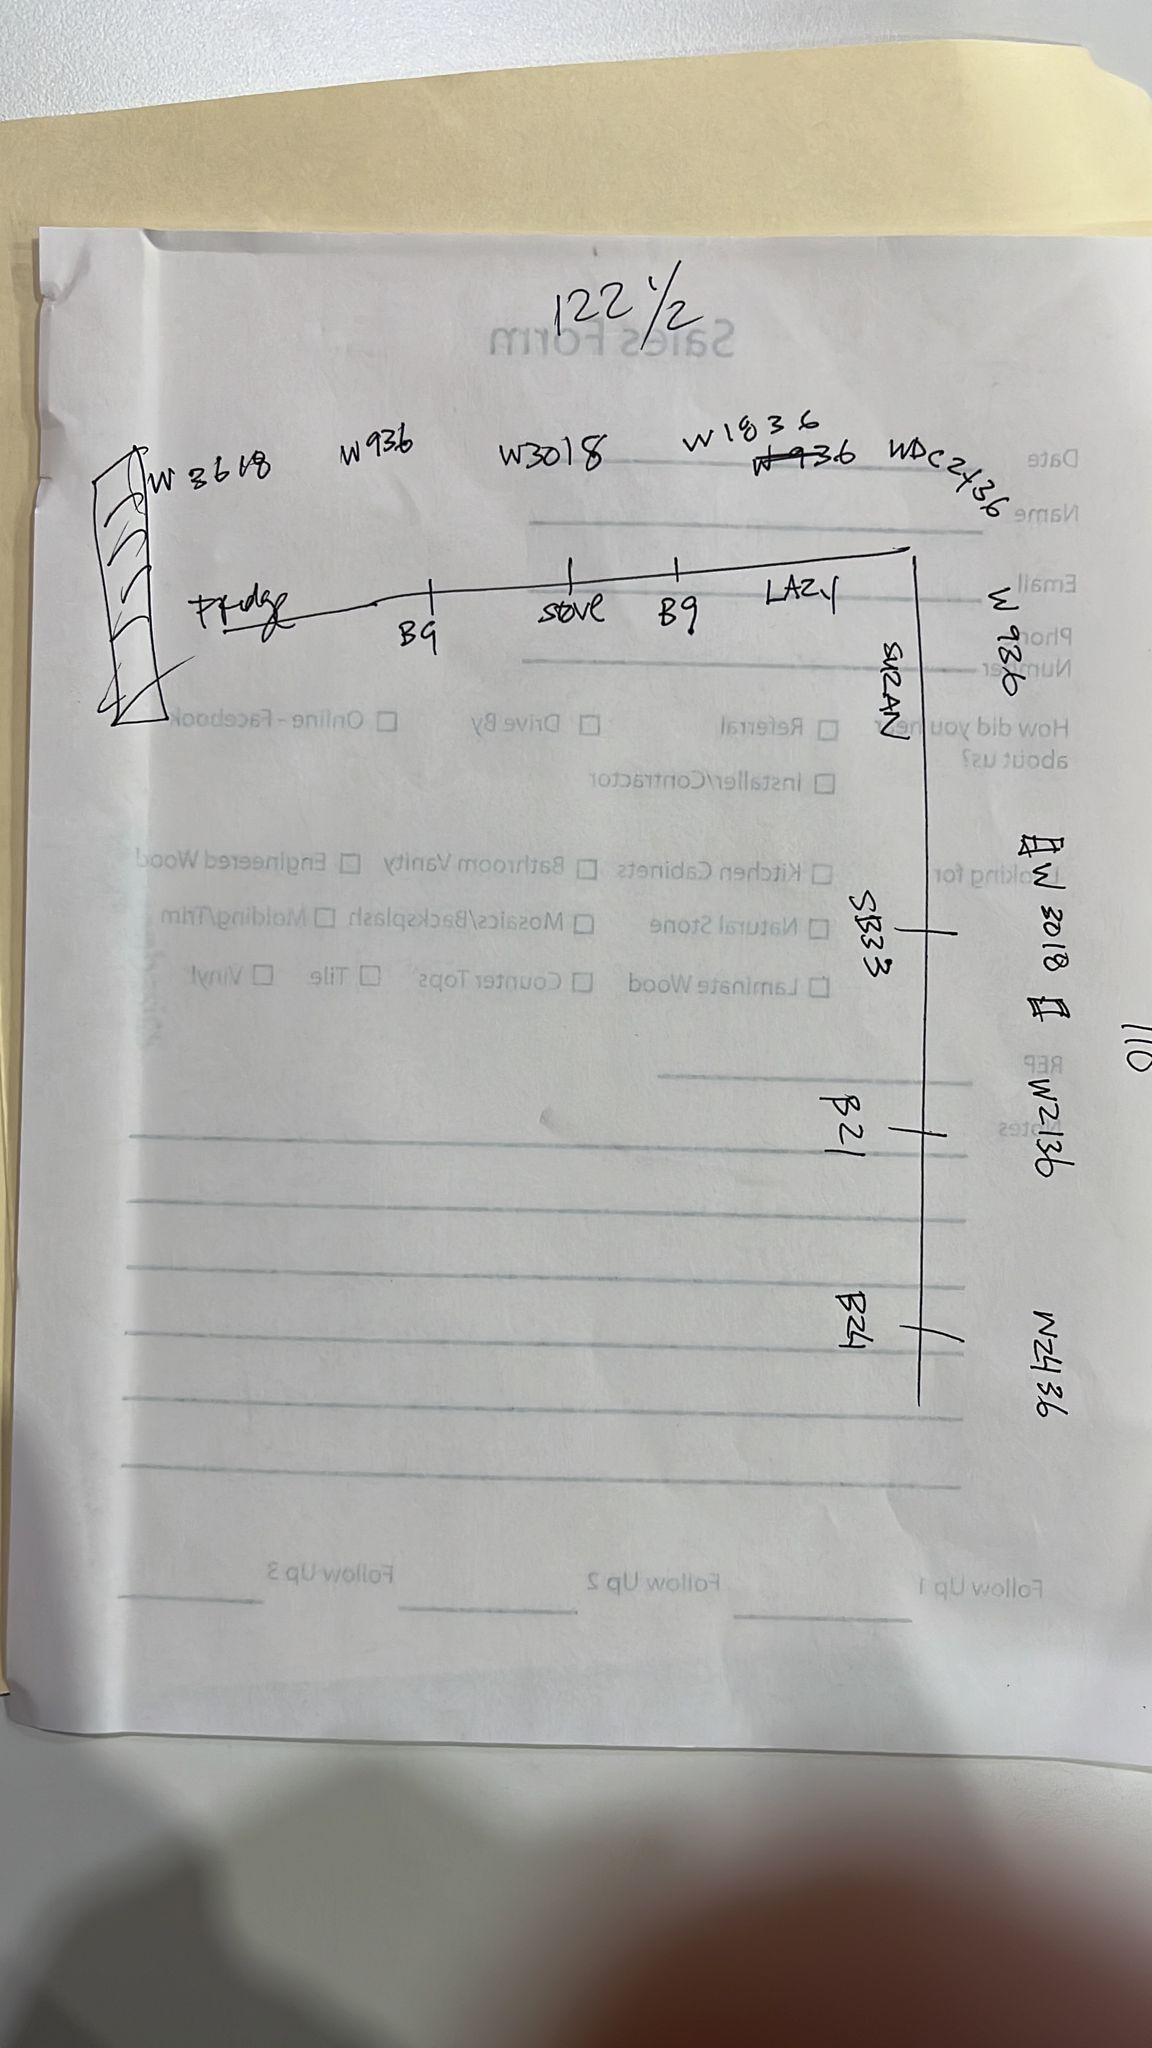 122 1/2
Sales Form
W3618 W936 W3018 W1836 WDC2436
W936
Date
Name
Fridge B9 stove B9 LAZY
SUZAN
W936
Email
Phone
Number
How did you hear about us?
Referral
Drive By
Online - Facebook
Installer/Contractor
Looking for
Kitchen Cabinets
Bathroom Vanity
Engineered Wood
Natural Stone
Mosaics/Backsplash
Molding/Trim
Laminate Wood
Counter Tops
Tile
Vinyl
SB33
W3018
110
REP
Notes
B21
W2136
B24
W2436
Follow Up 1
Follow Up 2
Follow Up 3